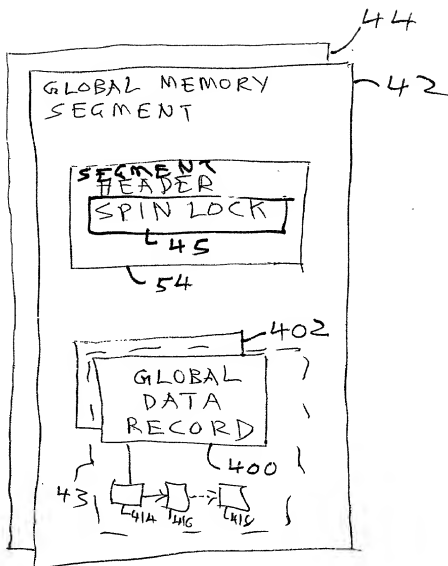 44
42
GLOBAL MEMORY
SEGMENT
SEGMENT
HEADER
SPIN LOCK
45
54
402
GLOBAL
DATA
RECORD
400
43
414
416
418